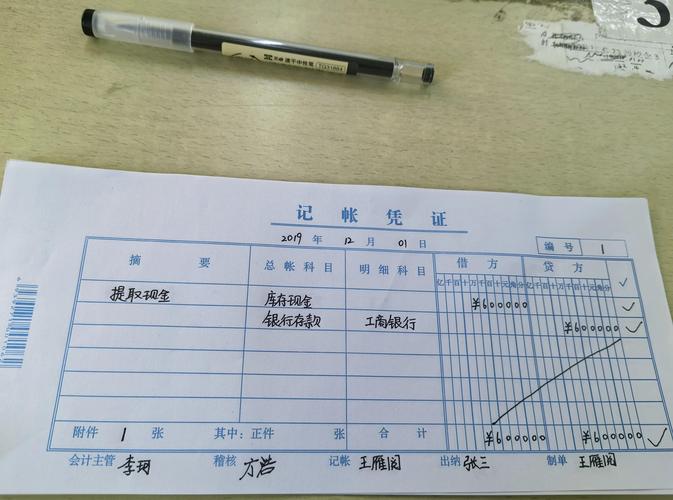 速干中性笔 TG31884
3
记帐凭证
2019 年 12 月 01 日
编号 1
摘要 总帐科目 明细科目 借方 贷方 ✓
亿千百十万千百十元角分 亿千百十万千百十元角分
提取现金 库存现金 ¥600000 ✓
银行存款 工商银行 ¥600000 ✓
附件 1 张 其中:正件 张 合计 ¥600000 ¥600000 ✓
会计主管 李玥 稽核 方浩 记帐 王雁闵 出纳 张三 制单 王雁闵